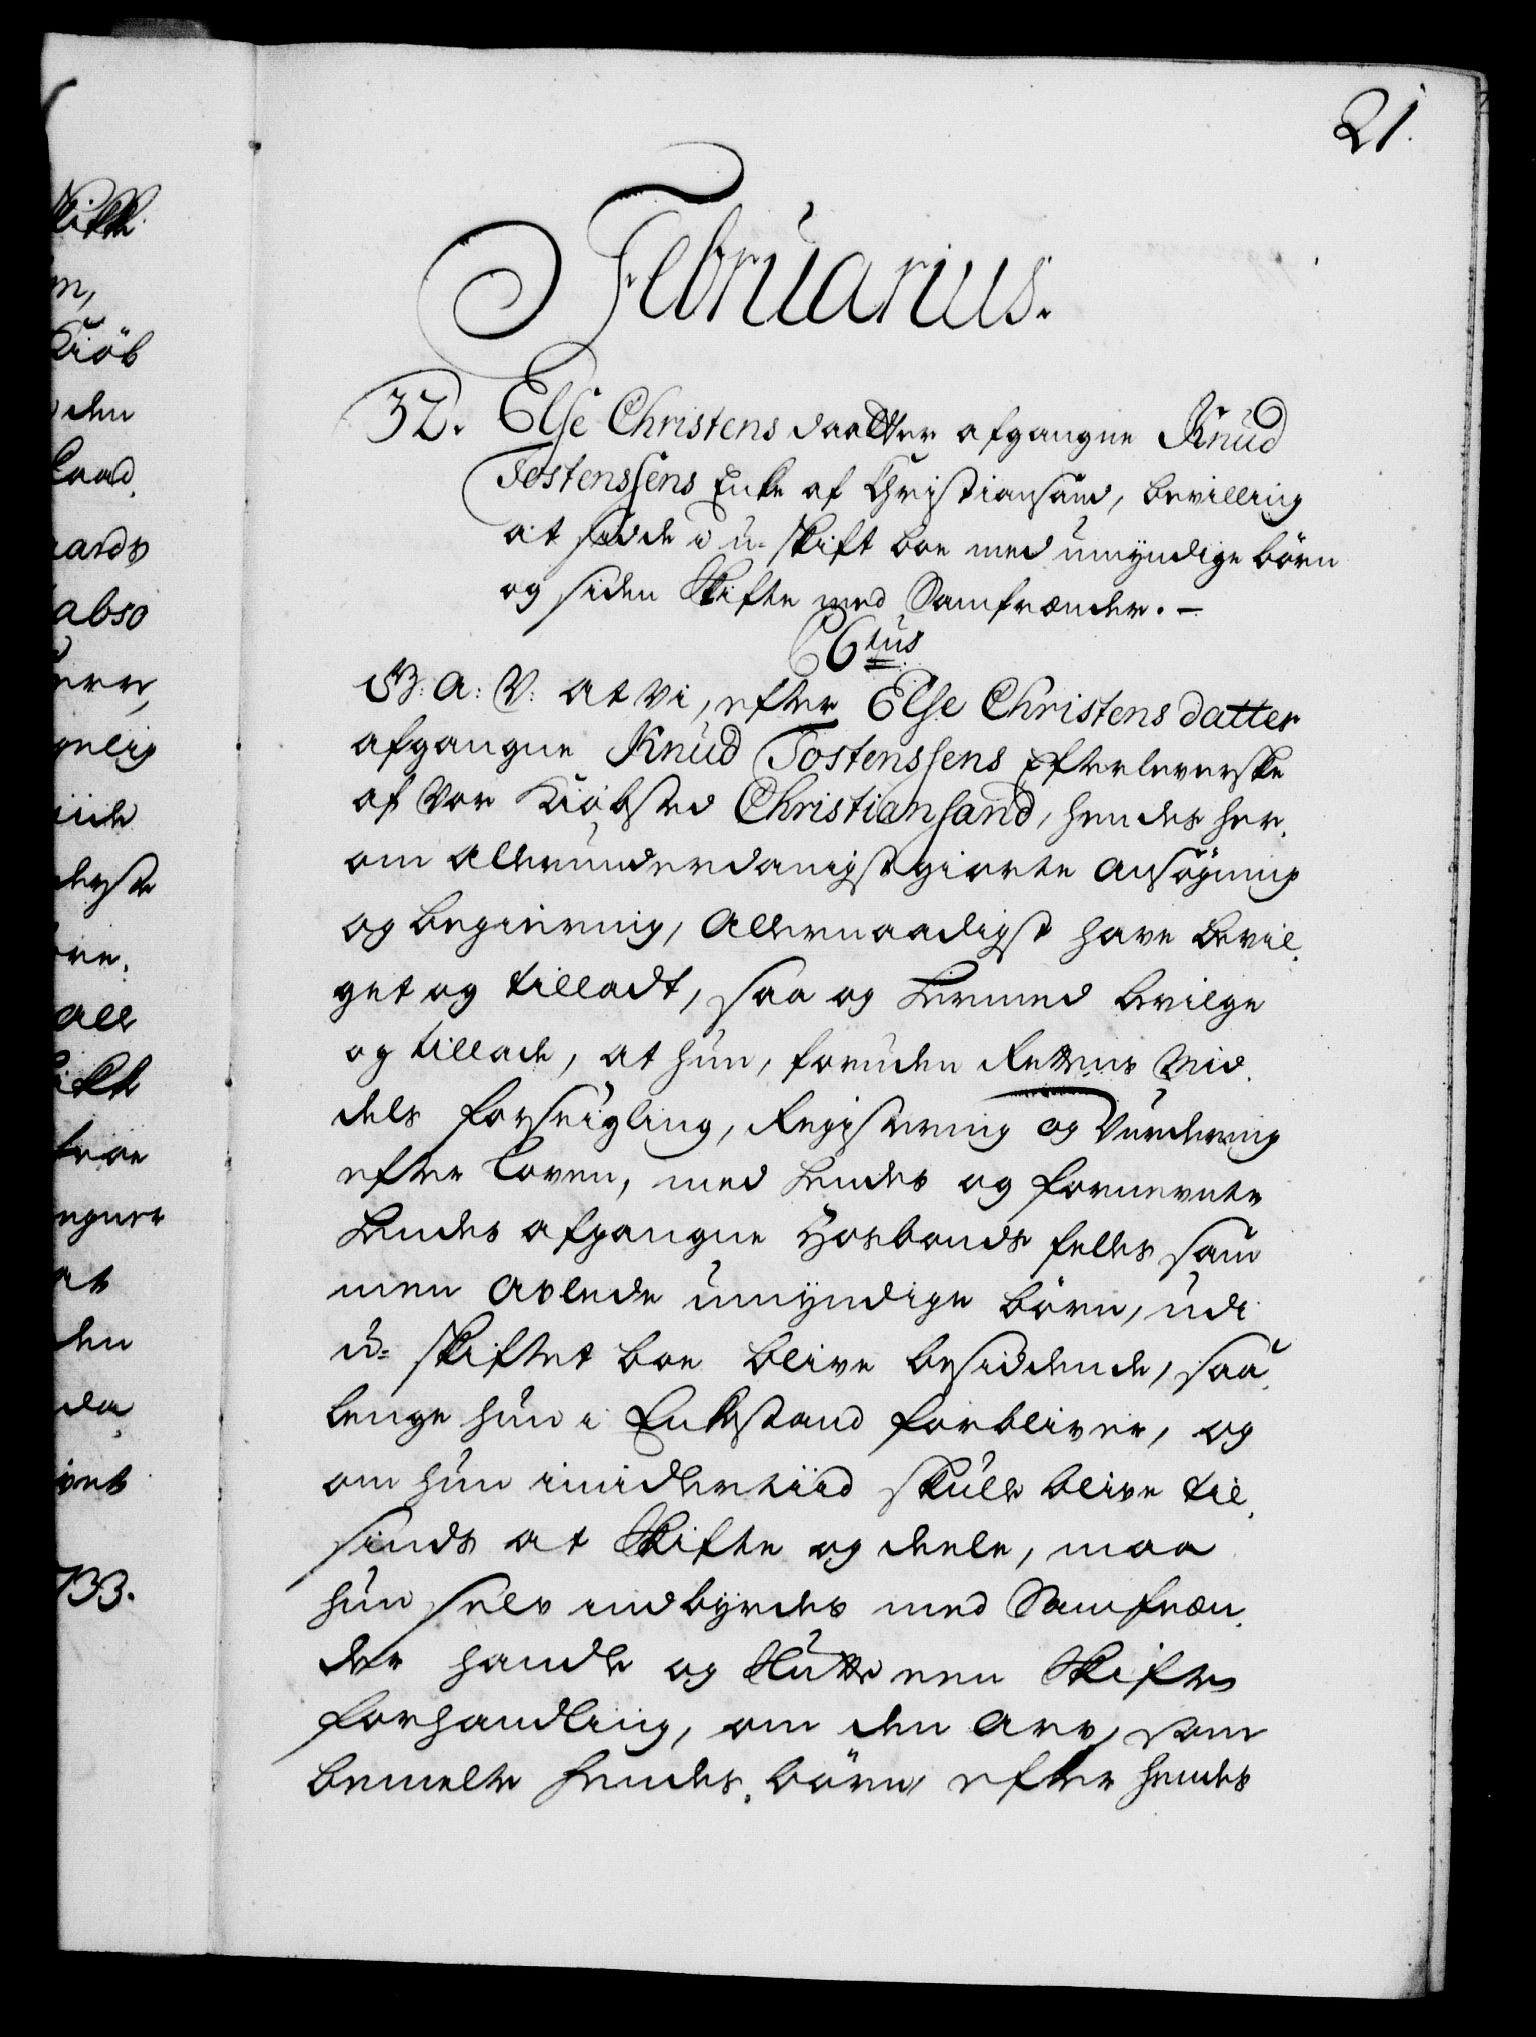 21.
Februarius.
32. Else Christens daatter afgangne Knud
Tostenssens Enke af Christiansand, bevilling
at sidde i u-skift boe med umyndige börn
og siden Skifte med Samfrænder. –
C 6tus
G: A: V: at Vi, efter Else Christens datter
afgangne Knud Tostenssens Efterleverske
af Vor Kiöbsted Christiansand, hendes her,
om allerunderdanigst giorte ansögning
og begiering, allernaadigst have bevil,
get og tilladt, saa og hermed bevilge
og tillade, at hun, foruden Rettens Mid,
dels forseigling, Registering og Vurdering
efter Loven, med hendes og fornevnte
hendes afgangne Hosbonds felles sam
men avlede umyndige börn, udi
u-skiftet boe blive besiddende, saa,
lenge hun i Enkestand forbliver, og
om hun imidlertiid skulle blive til,
sinds at Skifte og deele, maa
hun selv indbyrdes med Samfræn,
der handle og slutte een Skifte
forhandling, om den arv, som
bemelte hendes börn efter hendes
Kiöb
den
Laad,
abso
gelig
iide
derste
all
egner
at
den
da,
733.